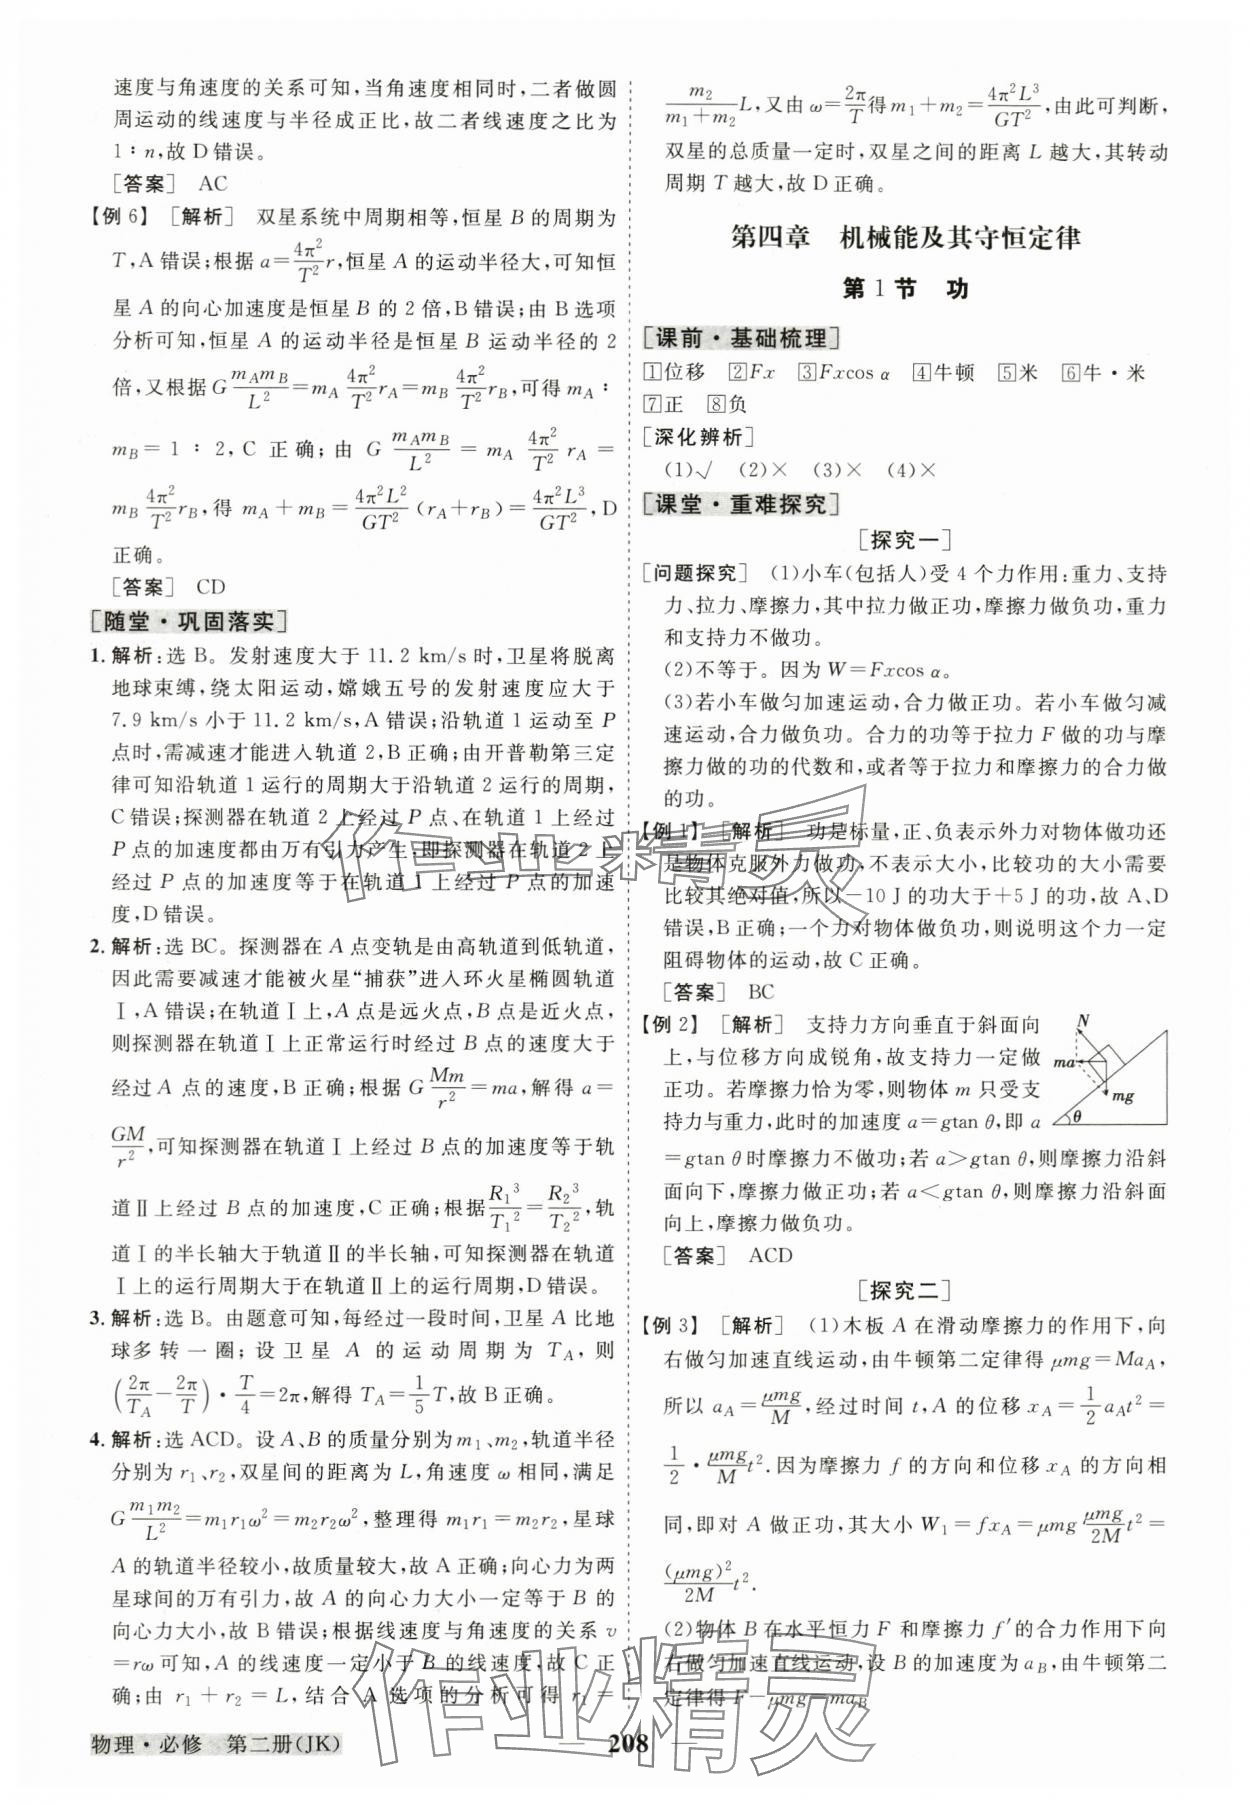 速度与角速度的关系可知,当角速度相同时,二者做圆
周运动的线速度与半径成正比,故二者线速度之比为
1∶n,故 D 错误。
[答案] AC
【例 6】 [解析] 双星系统中周期相等,恒星 B 的周期为
T,A 错误;根据 a=4π²/T² r,恒星 A 的运动半径大,可知恒
星 A 的向心加速度是恒星 B 的 2 倍,B 错误;由 B 选项
分析可知,恒星 A 的运动半径是恒星 B 运动半径的 2
倍,又根据 G mAmB/L² =mA 4π²/T² rA=mB 4π²/T² rB,可得 mA∶
mB=1∶2,C 正确;由 G mAmB/L² = mA 4π²/T² rA =
mB 4π²/T² rB,得 mA+mB=4π²L²/GT² (rA+rB)=4π²L³/GT²,D
正确。
[答案] CD
[随堂·巩固落实]
1. 解析:选 B。发射速度大于 11.2 km/s 时,卫星将脱离
地球束缚,绕太阳运动,嫦娥五号的发射速度应大于
7.9 km/s 小于 11.2 km/s,A 错误;沿轨道 1 运动至 P
点时,需减速才能进入轨道 2,B 正确;由开普勒第三定
律可知沿轨道 1 运行的周期大于沿轨道 2 运行的周期,
C 错误;探测器在轨道 2 上经过 P 点、在轨道 1 上经过
P 点的加速度都由万有引力产生,即探测器在轨道 2 上
经过 P 点的加速度等于在轨道 1 上经过 P 点的加速
度,D 错误。
2. 解析:选 BC。探测器在 A 点变轨是由高轨道到低轨道,
因此需要减速才能被火星“捕获”进入环火星椭圆轨道
Ⅰ,A 错误;在轨道Ⅰ上,A 点是远火点,B 点是近火点,
则探测器在轨道Ⅰ上正常运行时经过 B 点的速度大于
经过 A 点的速度,B 正确;根据 G Mm/r² =ma,解得 a=
GM/r²,可知探测器在轨道Ⅰ上经过 B 点的加速度等于轨
道Ⅱ上经过 B 点的加速度,C 正确;根据 R₁³/T₁² = R₂³/T₂²,轨
道Ⅰ的半长轴大于轨道Ⅱ的半长轴,可知探测器在轨道
Ⅰ上的运行周期大于在轨道Ⅱ上的运行周期,D 错误。
3. 解析:选 B。由题意可知,每经过一段时间,卫星 A 比地
球多转一圈;设卫星 A 的运动周期为 TA,则
(2π/TA − 2π/T)·T/4=2π,解得 TA=1/5 T,故 B 正确。
4. 解析:选 ACD。设 A、B 的质量分别为 m₁、m₂,轨道半径
分别为 r₁、r₂,双星间的距离为 L,角速度 ω 相同,满足
G m₁m₂/L² =m₁r₁ω²=m₂r₂ω²,整理得 m₁r₁=m₂r₂,星球
A 的轨道半径较小,故质量较大,故 A 正确;向心力为两
星球间的万有引力,故 A 的向心力大小一定等于 B 的
向心力大小,故 B 错误;根据线速度与角速度的关系 v
=rω 可知,A 的线速度一定小于 B 的线速度,故 C 正
确;由 r₁+r₂=L,结合 A 选项的分析可得 r₁=
m₂/(m₁+m₂) L,又由 ω=2π/T 得 m₁+m₂=4π²L³/GT²,由此可判断,
双星的总质量一定时,双星之间的距离 L 越大,其转动
周期 T 越大,故 D 正确。
第四章 机械能及其守恒定律
第 1 节 功
[课前·基础梳理]
1位移 2Fx 3Fxcos α 4牛顿 5米 6牛·米
7正 8负
[深化辨析]
(1)√ (2)× (3)× (4)×
[课堂·重难探究]
[探究一]
[问题探究] (1)小车(包括人)受 4 个力作用:重力、支持
力、拉力、摩擦力,其中拉力做正功,摩擦力做负功,重力
和支持力不做功。
(2)不等于。因为 W=Fxcos α。
(3)若小车做匀加速运动,合力做正功。若小车做匀减
速运动,合力做负功。合力的功等于拉力 F 做的功与摩
擦力做的功的代数和,或者等于拉力和摩擦力的合力做
的功。
【例 1】 [解析] 功是标量,正、负表示外力对物体做功还
是物体克服外力做功,不表示大小,比较功的大小需要
比较其绝对值,所以−10 J 的功大于+5 J 的功,故 A、D
错误,B 正确;一个力对物体做负功,则说明这个力一定
阻碍物体的运动,故 C 正确。
[答案] BC
【例 2】 [解析] 支持力方向垂直于斜面向
上,与位移方向成锐角,故支持力一定做
正功。若摩擦力恰为零,则物体 m 只受支
持力与重力,此时的加速度 a=gtan θ,即 a
=gtan θ 时摩擦力不做功;若 a>gtan θ,则摩擦力沿斜
面向下,摩擦力做正功;若 a<gtan θ,则摩擦力沿斜面
向上,摩擦力做负功。
N
ma
mg
θ
[答案] ACD
[探究二]
【例 3】 [解析] (1)木板 A 在滑动摩擦力的作用下,向
右做匀加速直线运动,由牛顿第二定律得 μmg=MaA,
所以 aA=μmg/M,经过时间 t,A 的位移 xA=1/2 aAt²=
1/2·μmg/M t².因为摩擦力 f 的方向和位移 xA 的方向相
同,即对 A 做正功,其大小 W₁=fxA=μmg μmg/2M t²=
(μmg)²/2M t².
(2)物体 B 在水平恒力 F 和摩擦力 f′的合力作用下向
右做匀加速直线运动,设 B 的加速度为 aB,由牛顿第二
定律得 F−μmg=maB
物理·必修 第二册(JK)
208
作业精灵
作业精灵